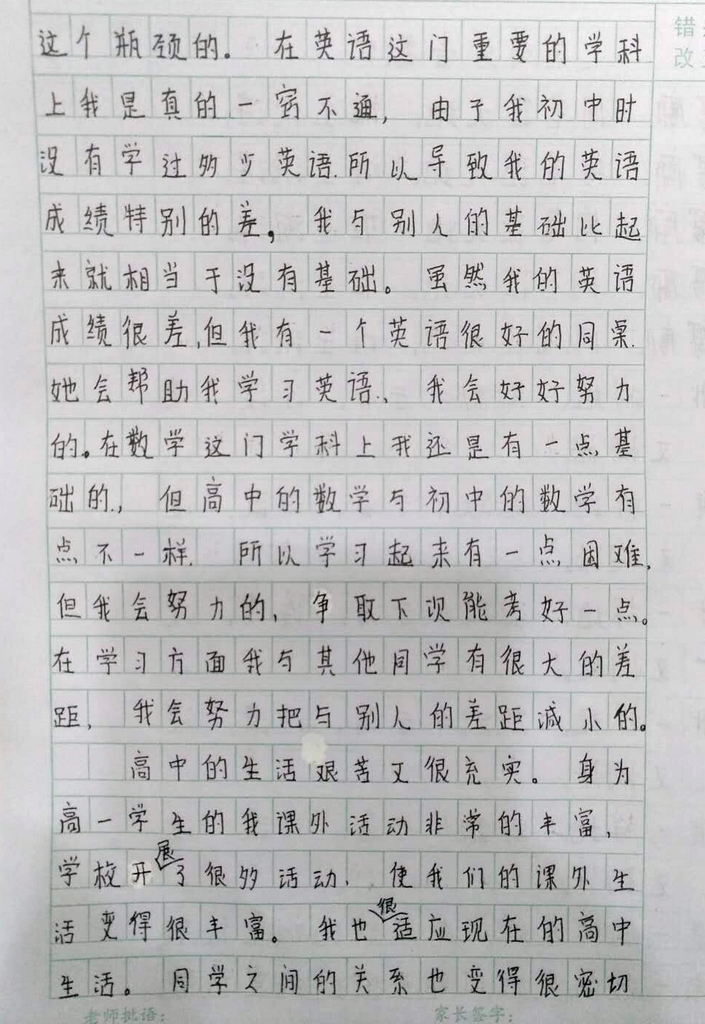 这个瓶颈的。在英语这门重要的学科
上我是真的一窍不通，由于我初中时
没有学过多少英语.所以导致我的英语
成绩特别的差，我与别人的基础比起
来就相当于没有基础。虽然我的英语
成绩很差,但我有一个英语很好的同桌.
她会帮助我学习英语.，我会好好努力
的。在数学这门学科上我还是有一点基
础的.，但高中的数学与初中的数学有
点不一样.所以学习起来有一点困难,
但我会努力的，争取下次能考好一点。
在学习方面我与其他同学有很大的差
距，我会努力把与别人的差距减小的。
高中的生活艰苦又很充实。身为
高一学生的我课外活动非常的丰富，
学校开展了很多活动.，使我们的课外生
活变得很丰富。我也很适应现在的高中
生活。同学之间的关系也变得很密切
老师批语：
家长签字：
错
改